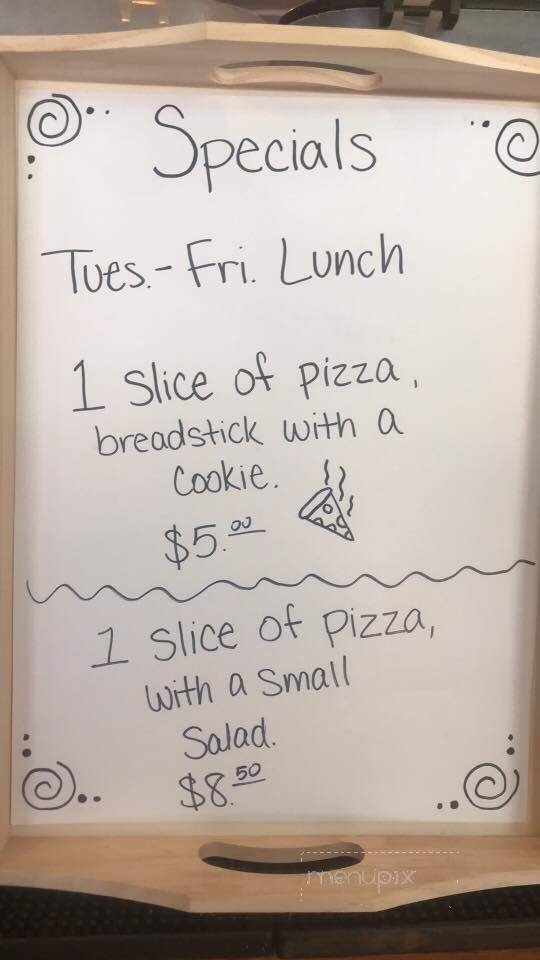 Specials
Tues.-Fri. Lunch
1 Slice of pizza,
breadstick with a
Cookie.
$5.00
1 Slice of Pizza,
with a Small
Salad.
$8.50
menupix